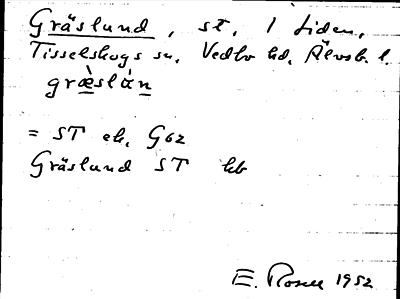 Gräslund, st, 1 Liden,
Tisselskogs sn, Vedbo hd, Älvsb. l.
græ̀slán
= ST ek. G62
Gräslund ST hb
E. Rosell 1952